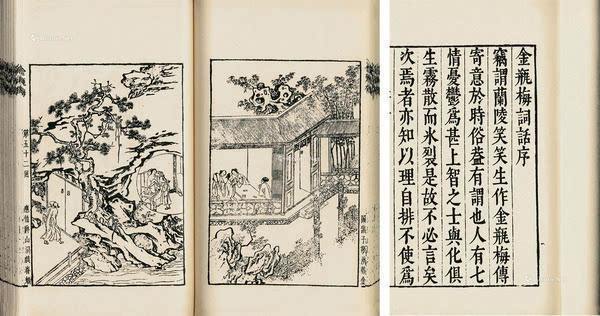 金瓶梅詞話序
竊謂蘭陵笑笑生作金瓶梅傳
寄意於時俗葢有謂也人有七
情憂鬱爲甚上智之士與化俱
生霧散而氷裂是故不必言矣
次焉者亦知以理自排不使爲
第五十二回
應伯爵山洞戲春嬌